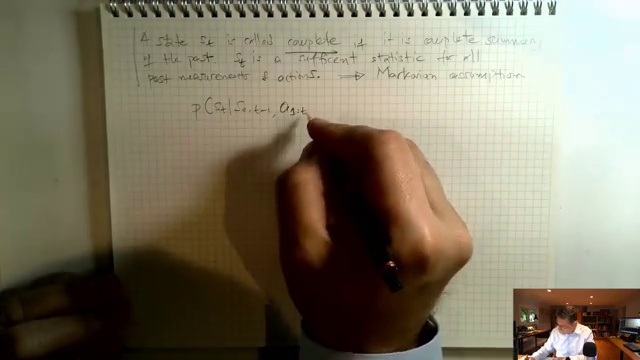 A state st is called complete if it is complete summary
of the past st is a sufficent statistic for all
past measurements & actions. ⟹ Markovian assumption
p(st|s0:t-1, a1:t